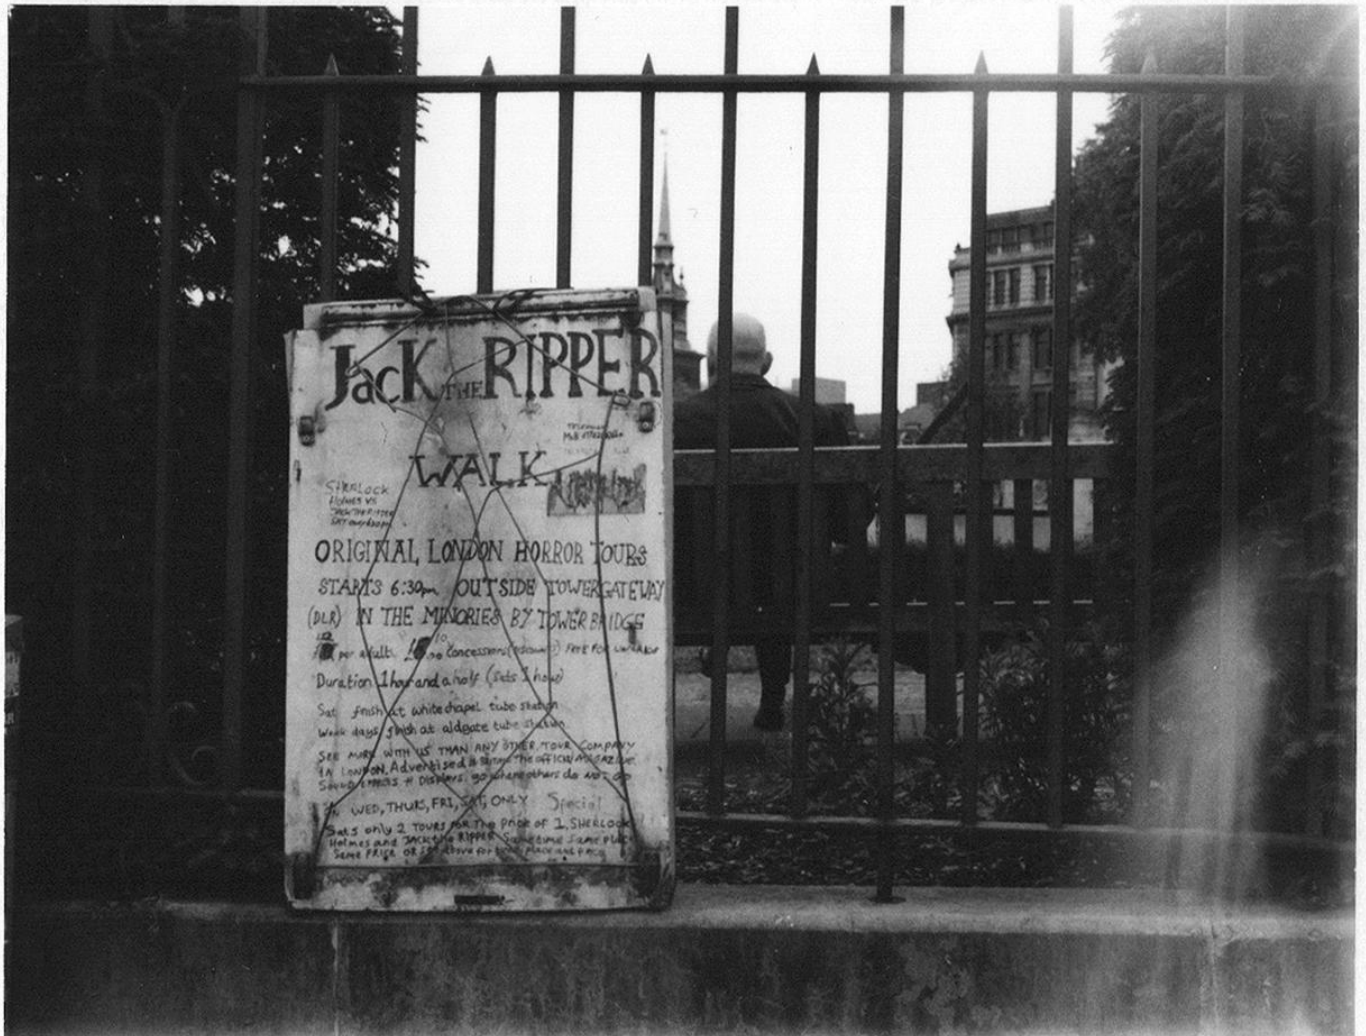 JacK THE RIPPER
WALK
SHERLOCK
HOLMES VS
JACK THE RIPPER
ORIGINAL LONDON HORROR TOURS
STARTS 6:30pm OUTSIDE TOWERGATEWAY
(DLR) IN THE MINORIES BY TOWER BRIDGE
per adults Concessions FREE FOR
Duration 1 hour and a half (Sats 1 hour)
Sat finish at whitechapel tube station
Week days finish at aldgate tube station
SEE MORE WITH US THAN ANY OTHER TOUR COMPANY
IN LONDON. Advertised in THE OFFICIAL MAGAZINE
SOUND EFFECTS + DISPLAYS. go where others do NOT GO
WED, THURS, FRI, SAT, ONLY Special
Sats only 2 TOURS FOR The Price OF 1. SHERLOCK
Holmes and JACK the RIPPER Same time Same place
Same PRICE